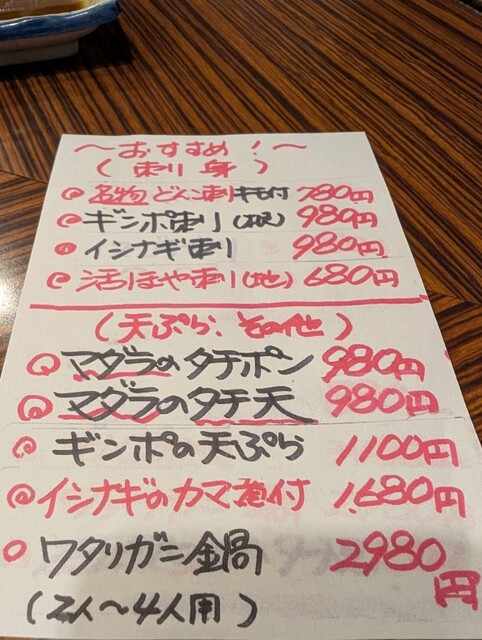 ～おすすめ！～
(刺り身)
名物どんこ刺 キモ付 780円
ギンポ刺り 980円
イシナギ刺り 980円
活ほや刺り(地) 680円
(天ぷら、その他)
マダラのタチポン 980円
マダラのタチ天 980円
ギンポの天ぷら 1100円
イシナギのカマ煮付 1,680円
ワタリガニ鍋 2980円
(2人～4人用)